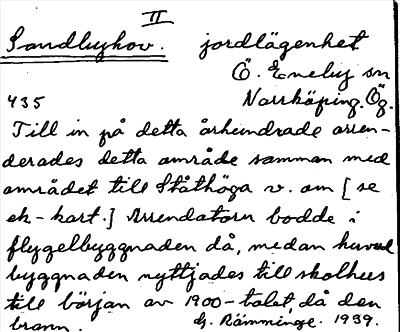 II
Sandbyhov. jordlägenhet
Ö. Eneby sn
435 Norrköping. Ög.
Till in på detta århundrade arren-
derades detta område samman med
området till Ståthöga v. om [se
ek-kart.] Arrendatorn bodde i
flygelbyggnaden då, medan huvud
byggnaden nyttjades till skolhus
till början av 1900-talet, då den
brann. G. Rämminge. 1939.